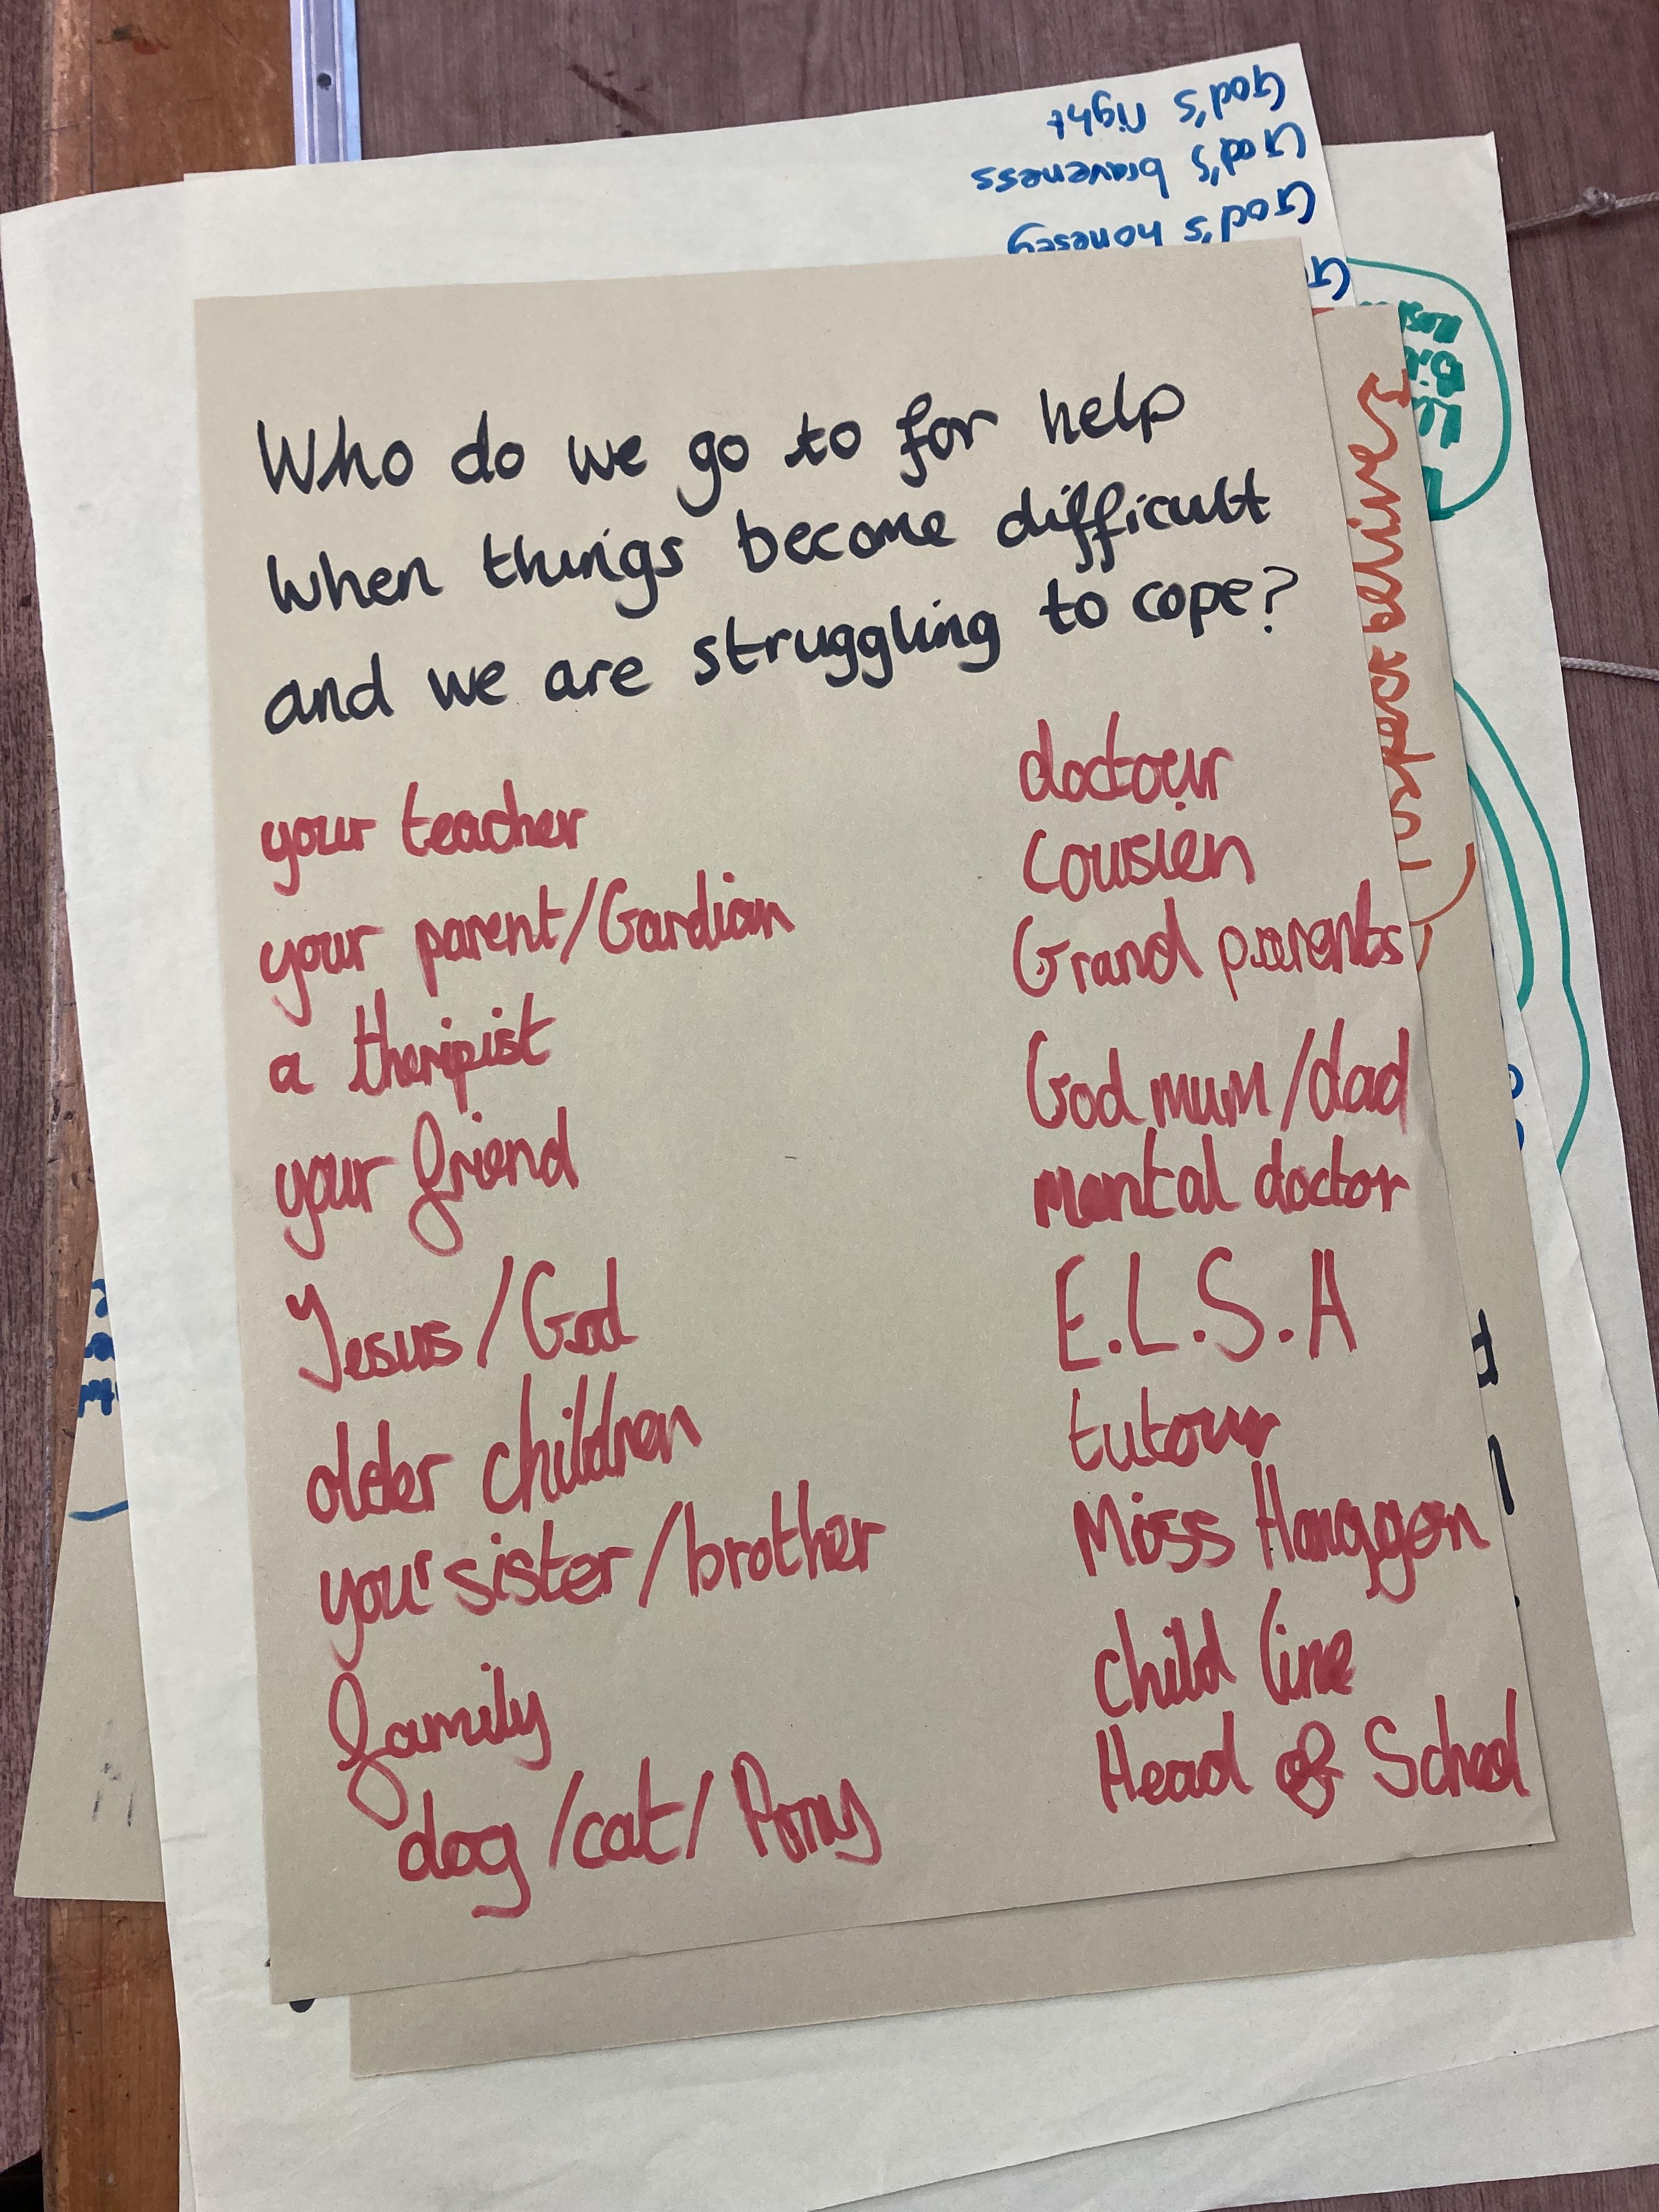 God's right
God's braveness
God's honesty
Who do we go to for help
when things become difficult
and we are struggling to cope?
your teacher
your parent/Gardian
a theripist
your friend
Jesus/God
older children
your sister/brother
family
dog/cat/Pony
doctour
Cousien
Grand parents
God mum/dad
mental doctor
E.L.S.A
tutour
Miss
child line
Head of School
respect belive